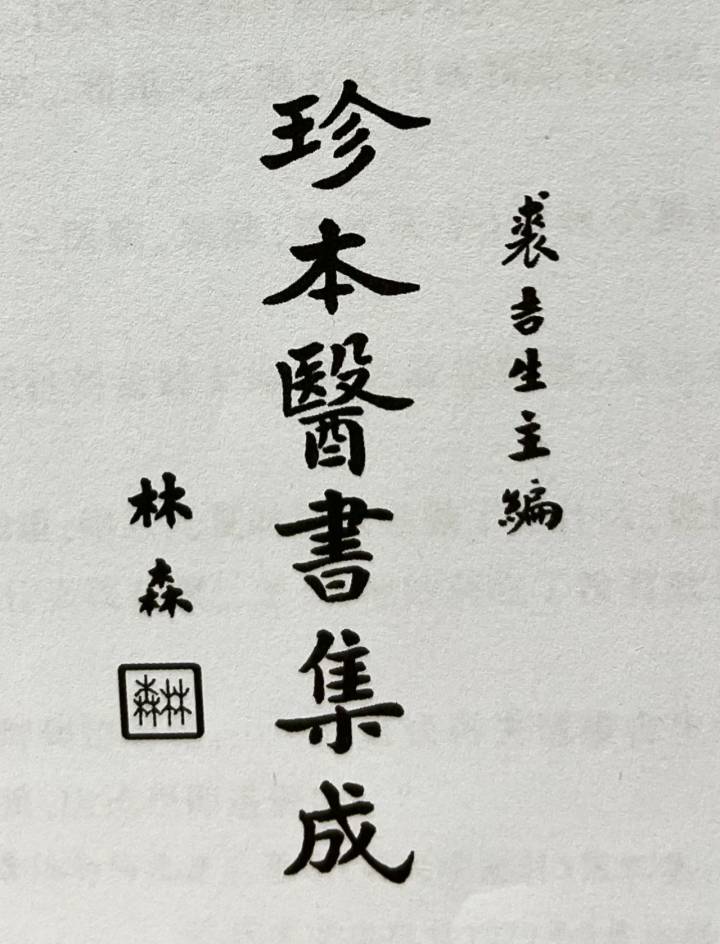 裘吉生主編
珍本醫書集成
林森
林森